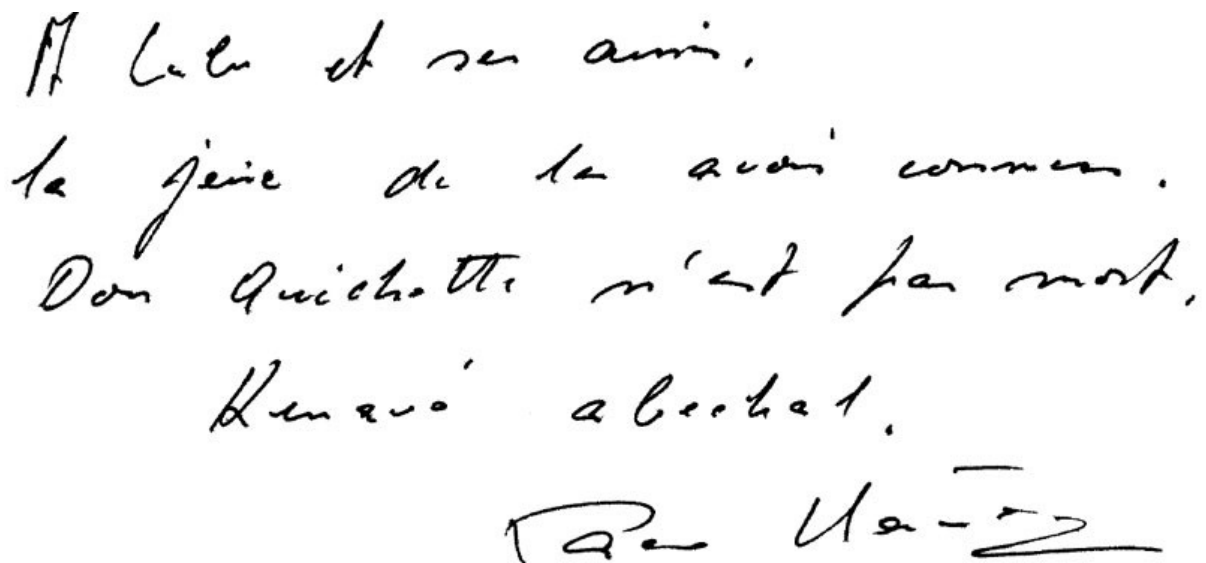 A Lulu et ses amis.
la joie de les avoir connus.
Don Quichotte n'est pas mort.
Kenavo